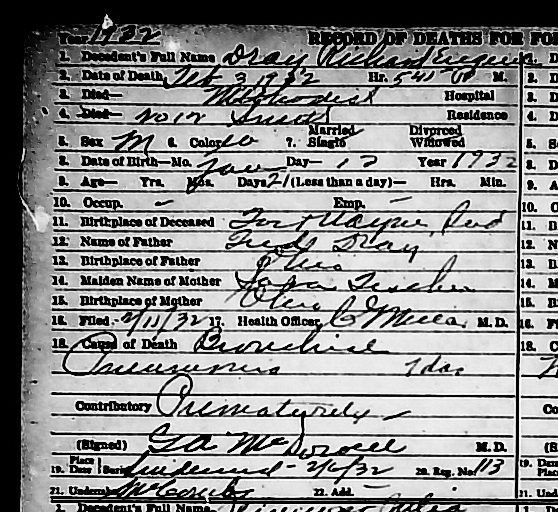 Year 1932 RECORD OF DEATHS FOR FO
1. Decedent's Full Name Dray Richard Eugene
2. Date of Death Feb 3, 1932 Hr. 5 41 P M.
3. Died— Methodist Hospital
4. Died— Residence
Married Divorced
5. Sex M 6. Color 7. Single Widowed
8. Date of Birth—Mo. Jan Day— 13 Year 1932
9. Age— Yrs. Mos. Days 21 (Less than a day)— Hrs. Min.
10. Occup. – Emp. –
11. Birthplace of Deceased Fort Wayne, Ind
12. Name of Father Fred Dray
13. Birthplace of Father Ohio
14. Maiden Name of Mother
15. Birthplace of Mother Ohio
16. Filed 2/11/32 17. Health Officer M. D.
18. Cause of Death Bronchial
Pneumonia 1 da.
Contributory Prematurity
(Signed) McDowell M. D.
Place
19. Date Burial Lindenwood - 2/6/32 20. Reg. No. 113
21. Undertaker McComb 22. Add.
2. Decedent's Full Name